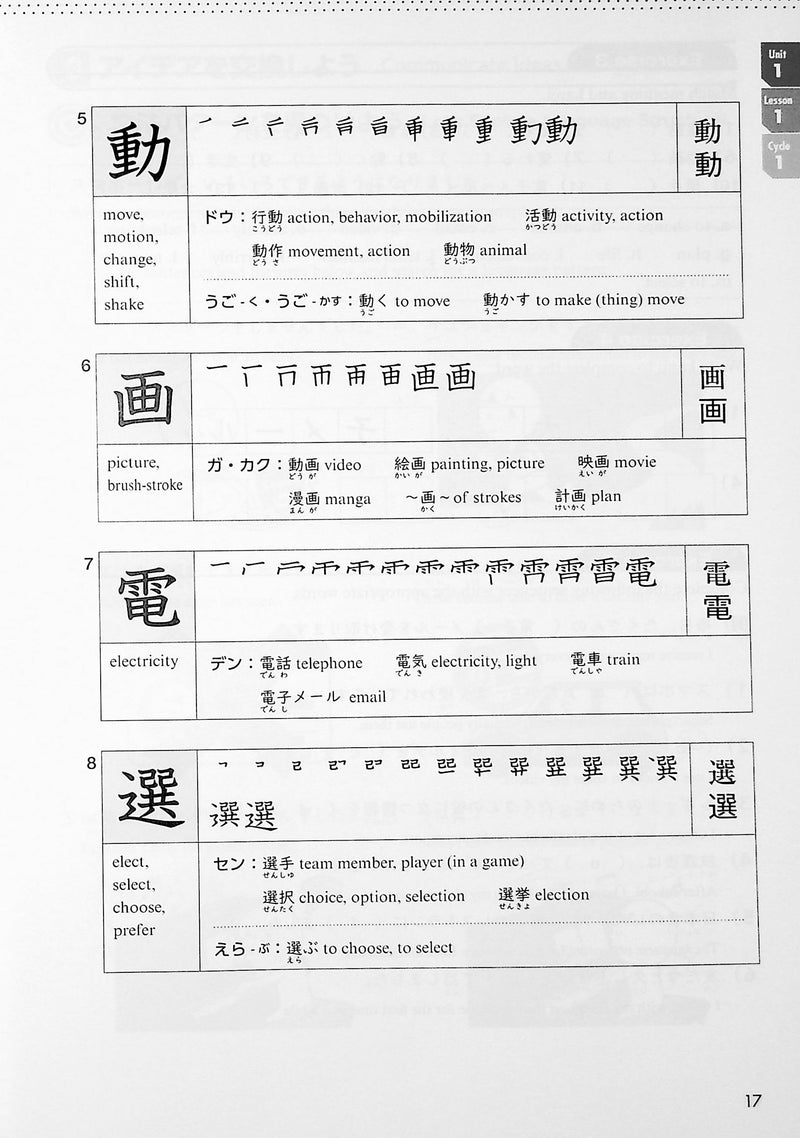 Unit
1
Lesson
1
Cycle
1
5
動
動
動
move,
motion,
change,
shift,
shake
ドウ：行動 action, behavior, mobilization 活動 activity, action
こうどう かつどう
動作 movement, action 動物 animal
どう さ どうぶつ
うご-く・うご-かす：動く to move 動かす to make (thing) move
うご うご
6
画
画
画
picture,
brush-stroke
ガ・カク：動画 video 絵画 painting, picture 映画 movie
どう が かい が えい が
漫画 manga ～画 ~ of strokes 計画 plan
まん が かく けいかく
7
電
電
電
electricity
デン：電話 telephone 電気 electricity, light 電車 train
でん わ でん き でんしゃ
電子メール email
でん し
8
選
選選
選
選
elect,
select,
choose,
prefer
セン：選手 team member, player (in a game)
せんしゅ
選択 choice, option, selection 選挙 election
せんたく せんきょ
えら-ぶ：選ぶ to choose, to select
えら
17